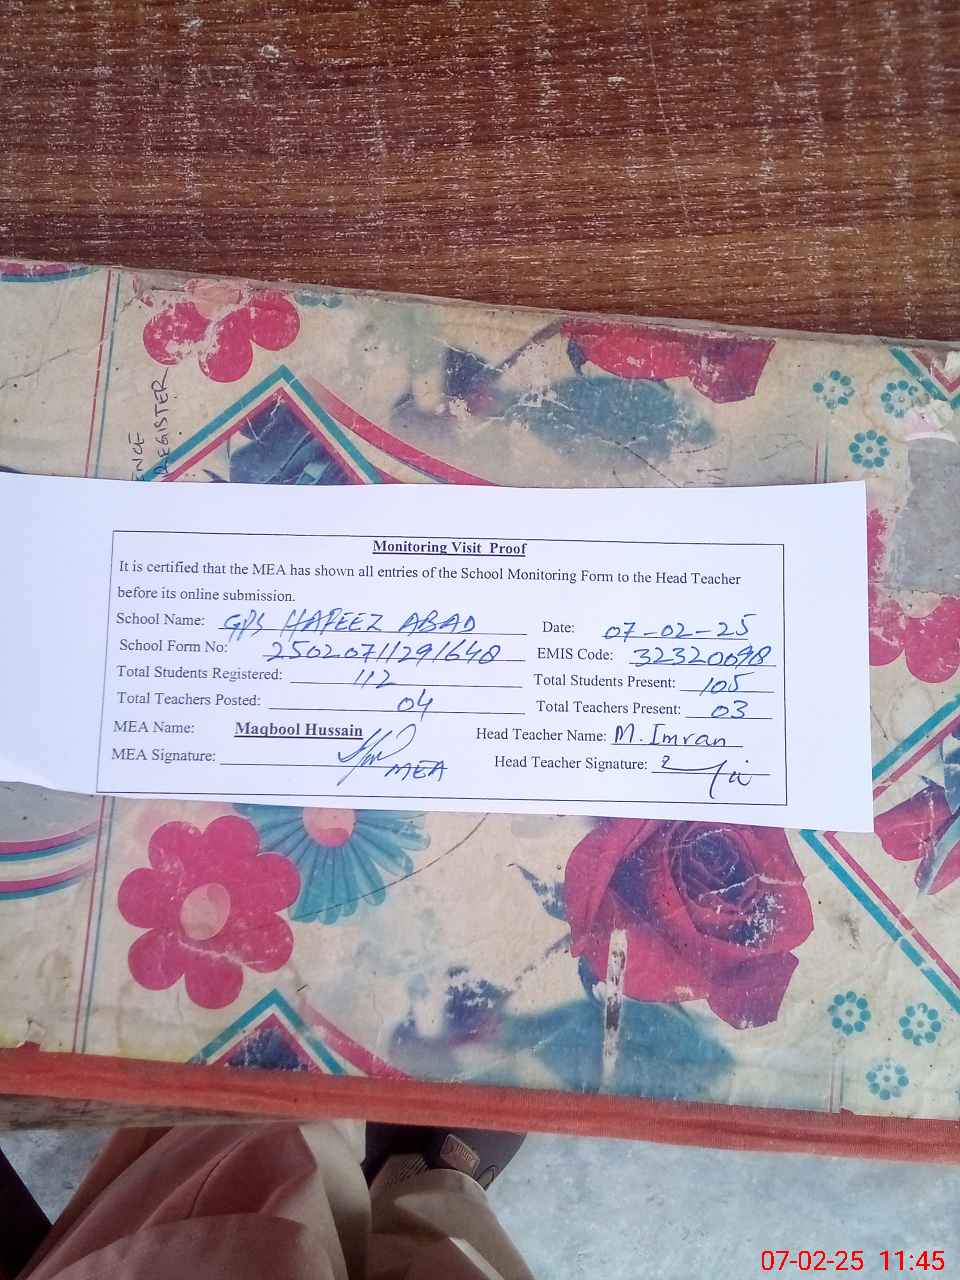 ENCE
REGISTER
Monitoring Visit Proof
It is certified that the MEA has shown all entries of the School Monitoring Form to the Head Teacher
before its online submission.
School Name: GPS HAFEEZ ABAD Date: 07-02-25
School Form No: 25020711291648 EMIS Code: 32320098
Total Students Registered: 112 Total Students Present: 105
Total Teachers Posted: 04 Total Teachers Present: 03
MEA Name: Maqbool Hussain Head Teacher Name: M. Imran
MEA Signature: MEA Head Teacher Signature:
07-02-25 11:45